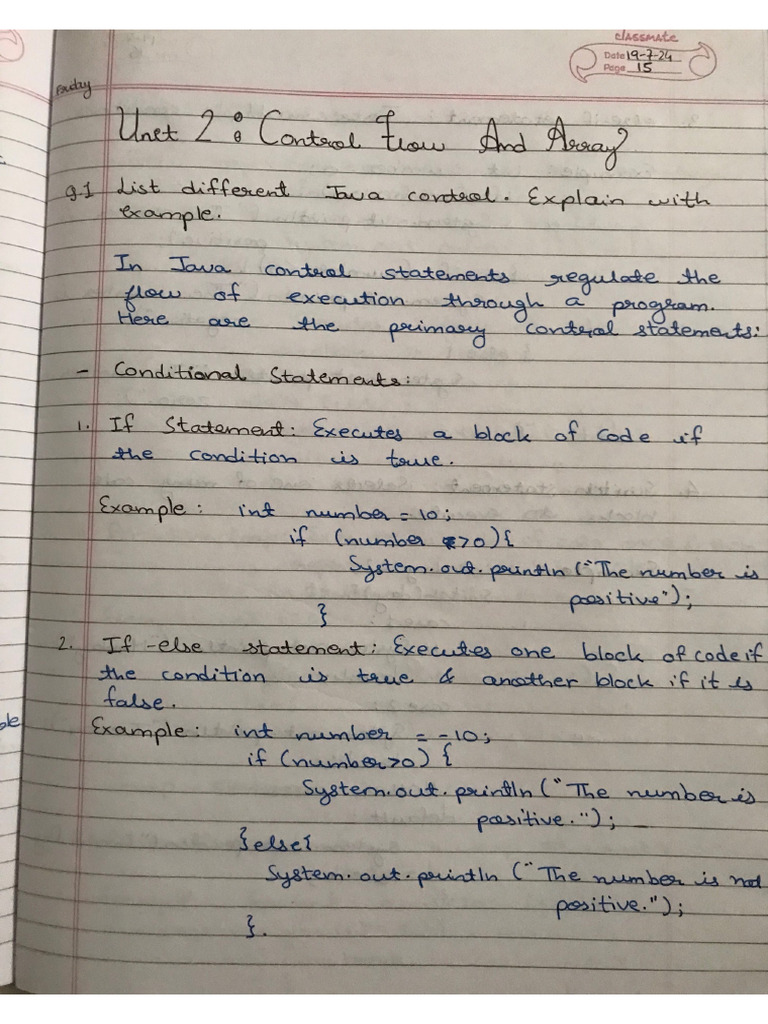 classmate
Date 19-7-24
Page 15
Friday
Unit 2 : Control Flow And Array
Q.1 List different Java control. Explain with
example.
In Java control statements regulate the
flow of execution through a program.
Here are the primary control statements:
- Conditional Statements:
1. If Statement: Executes a block of code if
the condition is true.
Example: int number = 10;
if (number >0){
System.out.println ("The number is
positive");
}
2. If -else statement: Executes one block of code if
the condition is true & another block if it is
false.
Example: int number = -10;
if (number>0) {
System.out.println ("The number is
positive.");
}else{
System.out.println ("The number is not
positive.");
}.